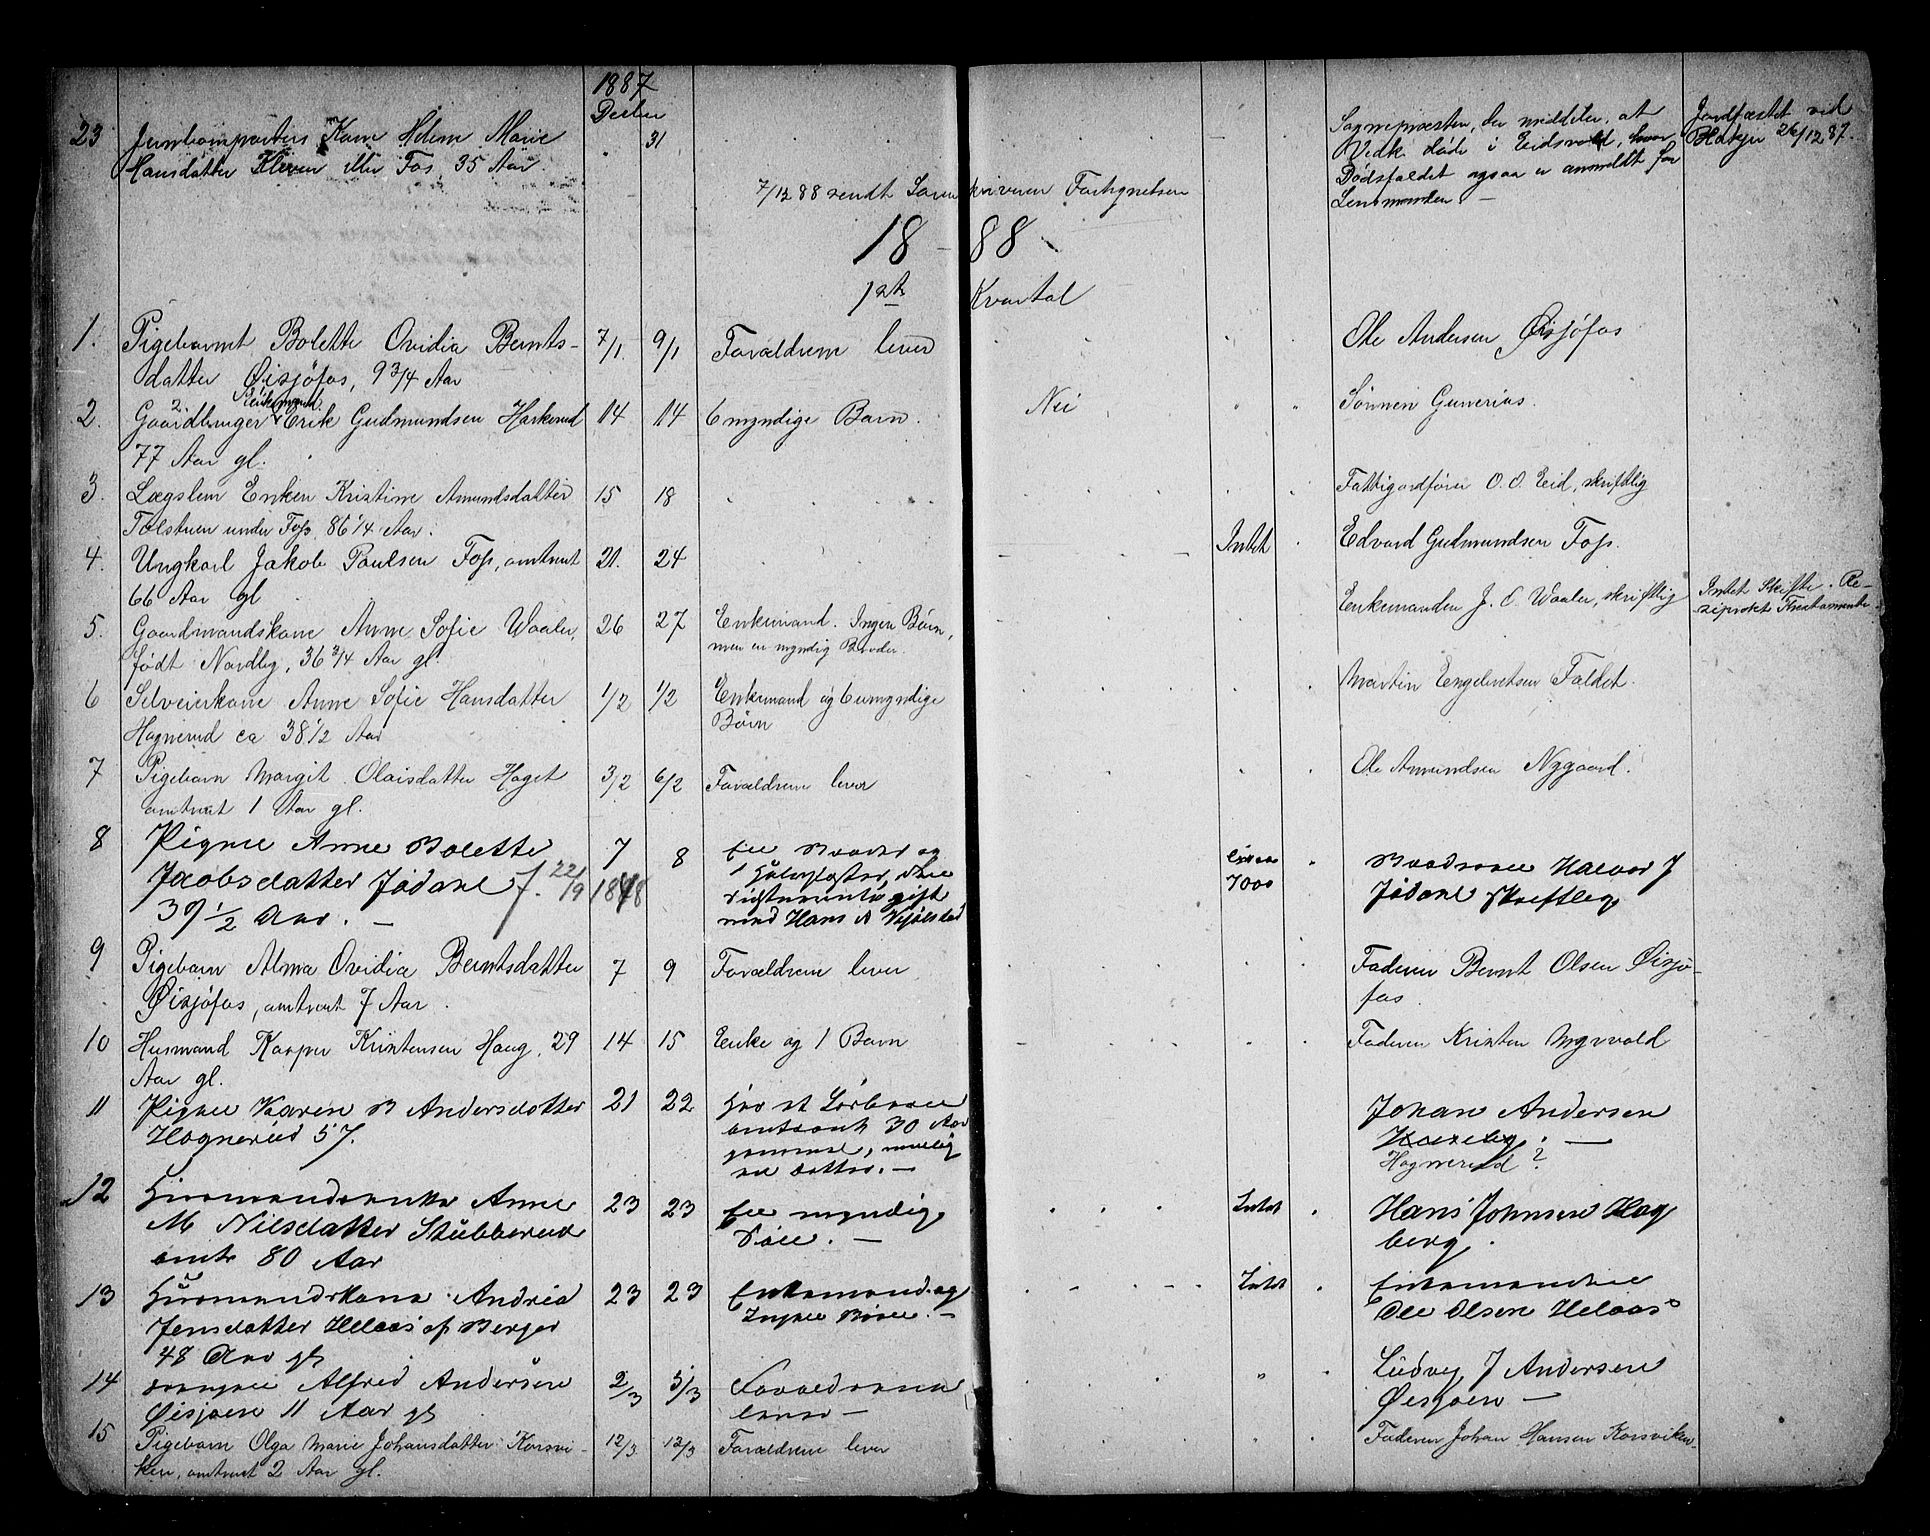 1887
Decbr
23 Helene Marie 31
Hansdatter Kleven eller Fos, 35 Aar.
Sognepræsten, der meddeler, at
Vedk. døde i Eidsvold, hvor
Dødsfaldet ogsaa er anmeldt for
Lensmanden. –
Jordfæstet ved
26/12 87.
7/12 88 sendt Sorenskriveren Fortegnelsen
18 – 88
1ste Kvartal
1. Pigebarnet Bolette Ovidia Bernts- 7/1. 9/1 Forældrene lever Ole Andersen Øisjøfos
datter Øisjøfos, 9 3/4 Aar
Enkemand
2. Gaardbruger Erik Gudmundsen Harkerud 14 14 6 myndige Barn. Nei Sønnen Gunerius.
77 Aar gl.
3. Lægslem Enken Kristine Amundsdatter 15 18 Fattigordfører O. O. Eid, skriftlig
Tolstuen under Foss, 86 1/4 Aar.
4. Ungkarl Jakob Paulsen Foss, omtrent 21. 24 Intet Edvard Gudmundsen Foss.
66 Aar gl
5. Gaardmandskone Anne Sofie Waaler, 26 27 Enkemand. Ingen Børn, Enkemanden J. O. Waaler, skriftlig Intet Skifte. Re-
født Nordby, 36 3/4 Aar gl. men en myndig Broder. siprokt Thestamente.
6 Selveierkone Anne Sofie Hansdatter 1/2 1/2 Enkemand og 6 umyndige Martin Engebretsen Faldet.
Hognerud ca 38 1/2 Aar Børn
7 Pigebarn Margit Olaisdatter Haget 3/2 6/2 Forældrene lever Ole Amundsen Nygaard.
omtrent 1 Aar gl.
8 Pigen Anne Bolette 7 8 En Broder og Circa Broderen Halvor J
Jacobsdatter Jødahl f. 22/9 1848 1 Halvsøster, den 7000 Jødahl skriftlig
39 1/2 Aar. – gift
med Hans A Kjølstad
9 Pigebarn Alma Ovidia Berntsdatter 7 9 Forældrene lever Faderen Bernt Olsen Øisjø-
Øisjøfos, omtrent 7 Aar. fos.
10 Husmand Kasper Kristensen Haug, 29 14 15 Enke og 1 Barn Faderen Kristen Myrvold
Aar gl.
11 Pigen Karen B Andersdatter 21 22 Har et Johan Andersen
Hognerud 57. omtrent 30 Aar
gammel, en Datter. – Hognerud?
12 Husmandsenke Anne 23 23 En myndig Intet Hans Johnsen Hog
M Nilsdatter Stubberud Søn. – berg.
omtr 80 Aar
13 Husmandskone Andrea 23 23 Enkemand og Intet Enkemanden
Jensdatter Helaas af Berger Ingen Børn. – Ole Olsen Helaas
48 Aar gl
14 Drengen Alfred Andersen 2/3 5/3 Forældrene Ludvig J Andersen
Øisjoen 11 Aar gl lever – Øisjoen –
15 Pigebarn Olga Marie Johansdatter Korsvi- 12/3 12/3 Forældrene lever Faderen Johan Hansen Korsviken.
ken, omtrent 2 Aar gl.